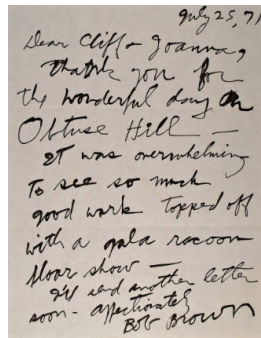 July 25, 71
Dear Cliff & Joanna,
thank you for
the wonderful day on
Obtuse Hill —
It was overwhelming
to see so much
good work topped off
with a gala racoon
floor show —
I'll send another letter
soon - affectionately
Bob Brown